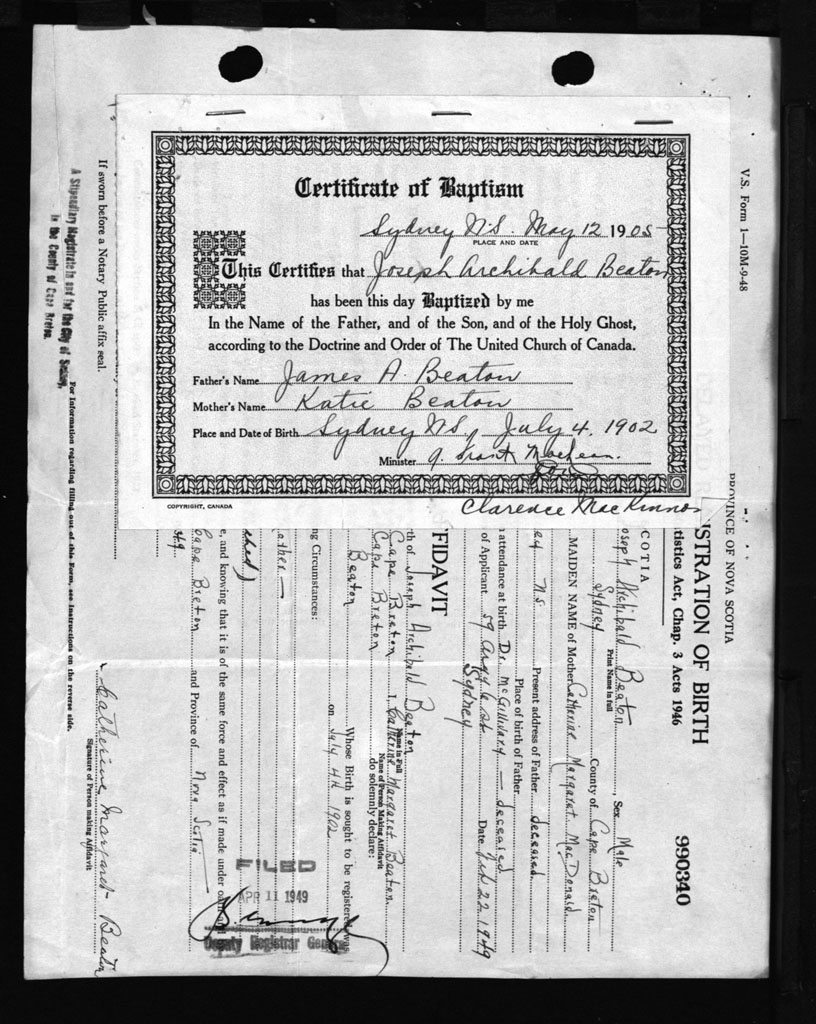 Certificate of Baptism
Sydney N.S. May 12 1905
PLACE AND DATE
This Certifies that Joseph Archibald Beaton
has been this day Baptized by me
In the Name of the Father, and of the Son, and of the Holy Ghost,
according to the Doctrine and Order of The United Church of Canada.
Father's Name James A. Beaton
Mother's Name Katie Beaton
Place and Date of Birth Sydney NS, July 4, 1902
Minister
COPYRIGHT, CANADA
Clarence MacKinnon
V.S. Form 1—10M-9-48
PROVINCE OF NOVA SCOTIA
ISTRATION OF BIRTH
990340
tistics Act, Chap. 3 Acts 1946
COTIA
oseph Archibald Beaton, Sex Male
Print Name in full
Sydney County of Cape Breton
MAIDEN NAME of Mother Catherine Margaret MacDonald
ey N.S. Present address of Father deceased
Place of birth of Father
attendance at birth Dr. McGillivary — deceased
of Applicant 59 Argyle St Date Feb 22 1949
Sydney
FIDAVIT
rth of Joseph Archibald Beaton
Name in Full
Cape Breton I, Catherine Margaret Beaton
Name of Person Making Affidavit
Cape Breton do solemnly declare:
Beaton Whose Birth is sought to be registered was
on July 4th 1902
ng Circumstances:
other —
shed)
e, and knowing that it is of the same force and effect as if made under oath
Cape Breton and Province of Nova Scotia
49
Catherine Margaret Beaton
Signature of Person making Affidavit
FILED
APR 11 1949
Deputy Registrar General
If sworn before a Notary Public affix seal.
For Information regarding filling out of this Form, see Instructions on the reverse side.
A Stipendiary Magistrate in and for the City of Sydney,
in the County of Cape Breton.